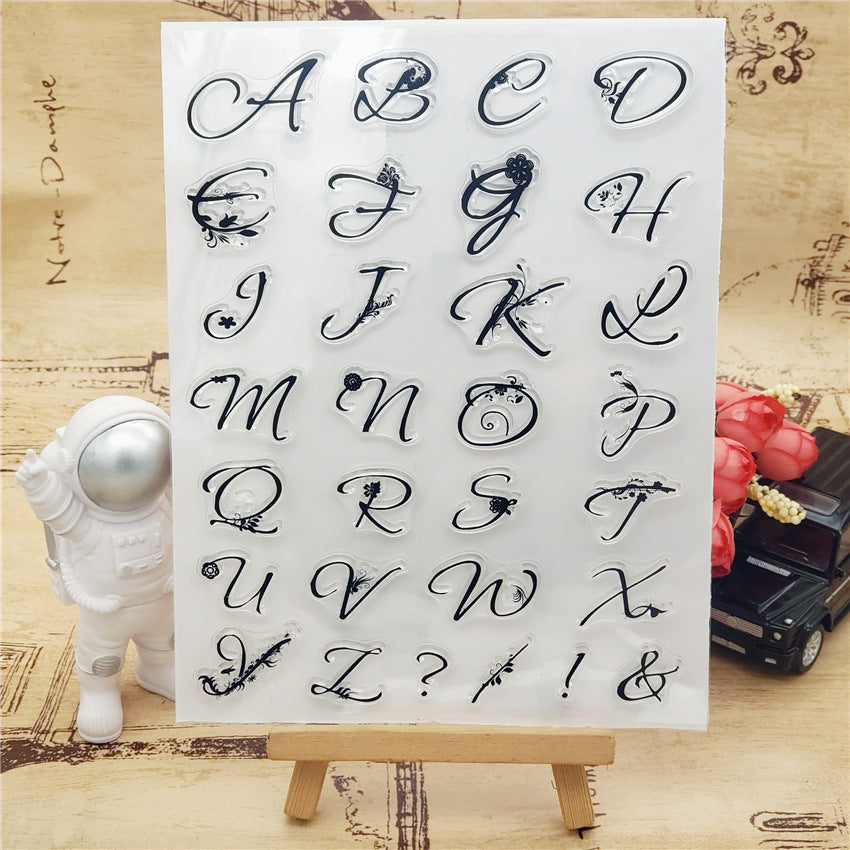 A B C D
E F G H
I J K L
M N O P
Q R S T
U V W X
Y Z ? / ! &
Notre-Damphe